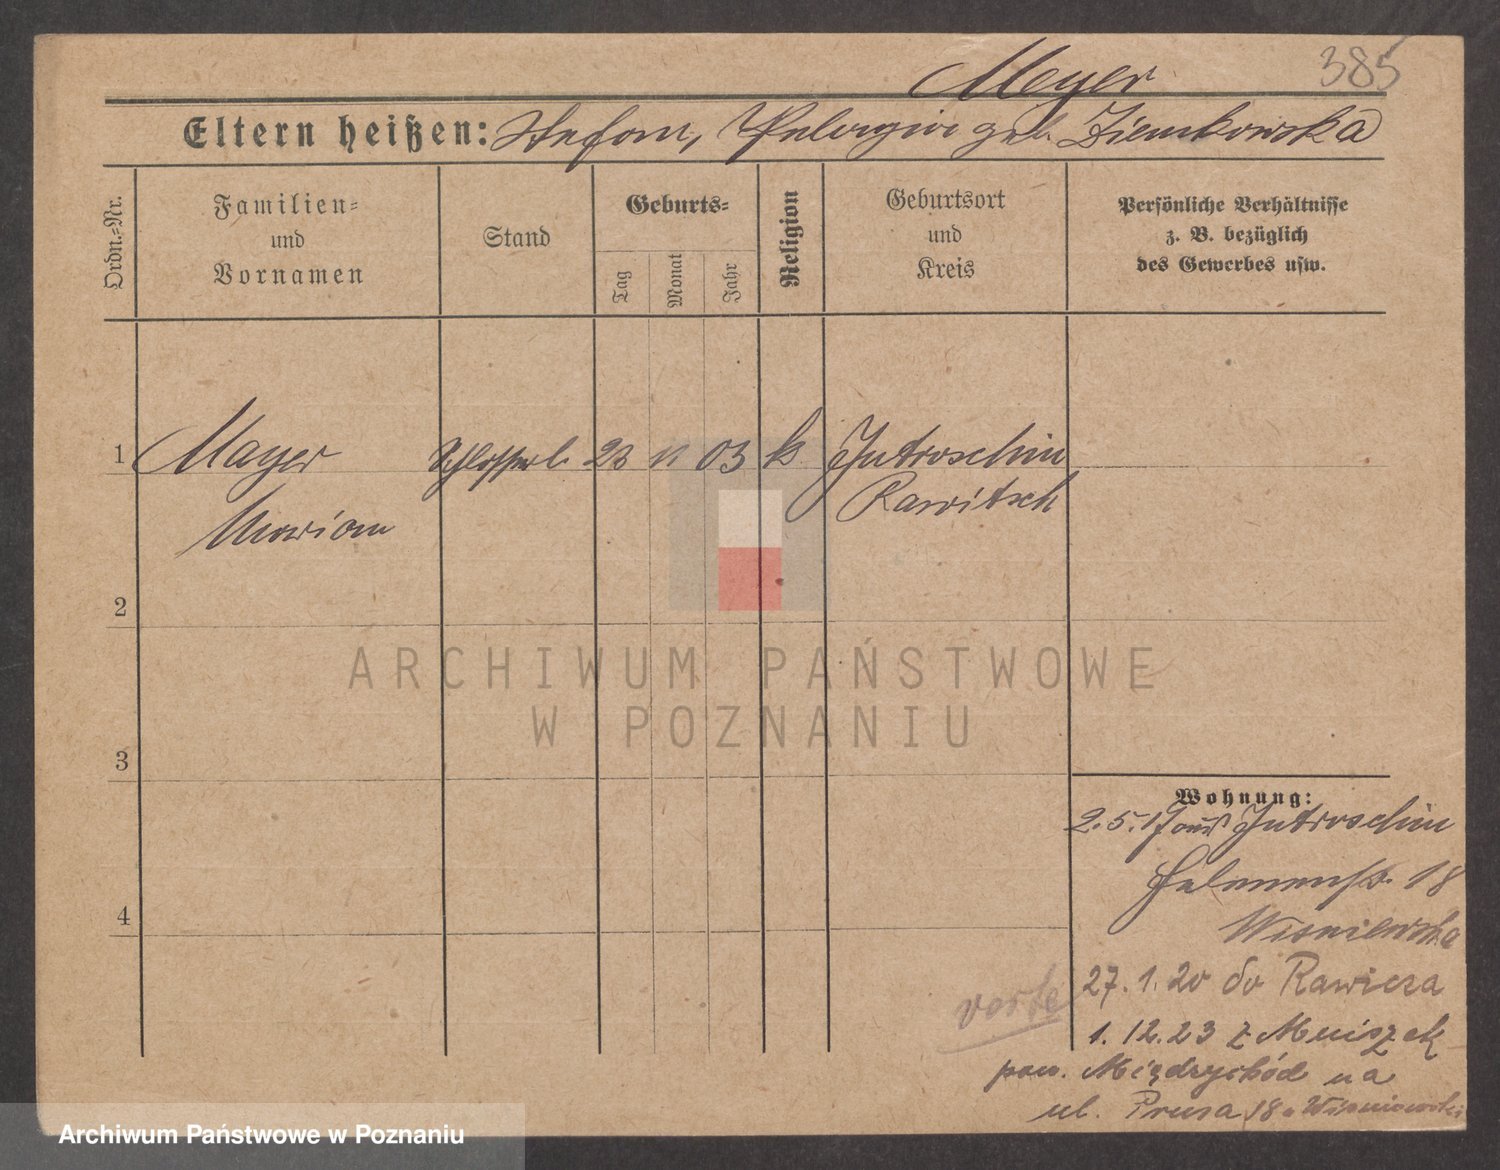 385
Meyer
Eltern heißen: Stefan, Pelagia geb. Ziemkowska
Ordn.=Nr.
Familien=
und
Vornamen
Stand
Geburts=
Tag
Monat
Jahr
Religion
Geburtsort
und
Kreis
Persönliche Verhältnisse
z. B. bezüglich
des Gewerbes usw.
1 Mayer Schlosserl. 23 11 03 k Jutroschin
Marian Rawitsch
2
3
4
Wohnung:
2.5.19 aus Jutroschin
18
Wisniewska
27.1.20 do Rawicza
1.12.23 z Mniszek
pow. Międzychód na
ul. Prusa 18 Wisniewski
verte
ARCHIWUM PAŃSTWOWE
W POZNANIU
Archiwum Państwowe w Poznaniu